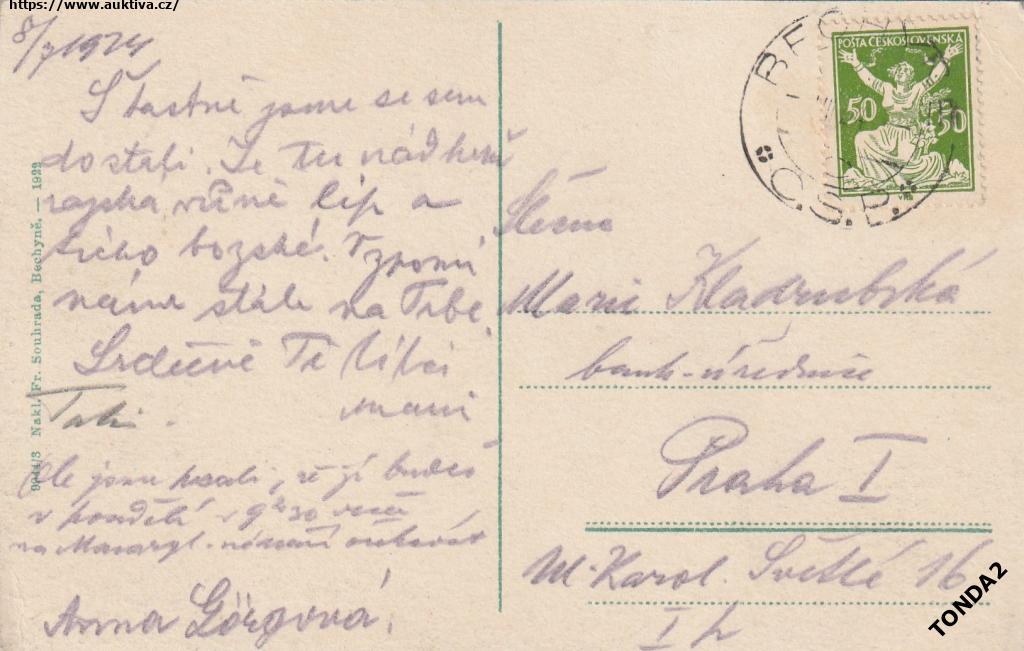 https://www.auktiva.cz/
8/7 1924
Šťastně jsme se sem
dostali. Je tu nádhera
rajská vůně lip a
ticho božské. Vzpomí
náme stále na Tebe.
Srdečně Tě líbá
Mani
Ole jsme psali, že ji budeš
v pondělí v 9h 30 večer
na Masaryk. nádraží očekávat
Anna Görgová.
9244/3 Nakl. Fr. Souhrada, Bechyně. — 1922
BECHYNĚ
Č.S.P.
POŠTA ČESKOSLOVENSKÁ
50 50
Slečna
Marie Kladrubská
bank. úřednice
Praha I
ul. Karol. Světlé 16
I p
TONDA2